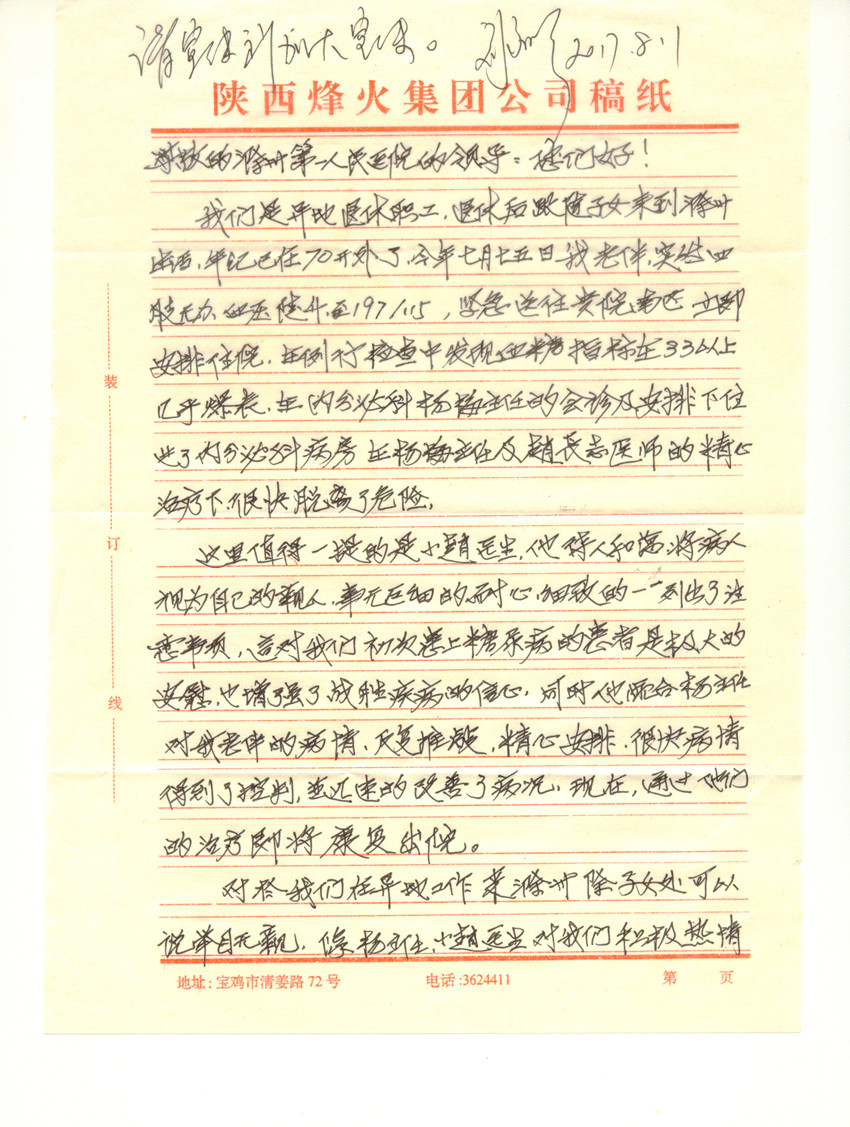 请宣传科加大宣传。 2017.8.1
陕西烽火集团公司稿纸
尊敬的滁州第一人民医院的领导：您们好！
我们是异地退休职工，退休后跟随子女来到滁州
生活，年纪已在70开外了，今年七月十五日我老伴，突发四
肢无力，血压陡升至197/115，紧急送往贵院
安排住院，在例行检查中发现血糖指标在33以上
几乎爆表，在内分泌科杨梅主任的会诊及安排下住
进了内分泌科病房在杨梅主任及赵长志医师的精心
治疗下，很快脱离了危险，
这里值得一提的是小赵医生，他待人和蔼，将病人
视为自己的亲人，事无巨细的耐心，细致的一一列出了注
意事项，这对我们初次患上糖尿病的患者是极大的
安慰，也增强了战胜疾病的信心，同时他配合杨主任
对我老伴的病情，反复推敲，精心安排，很快病情
得到了控制，并迅速的改善了病况，现在，通过他们
的治疗即将康复出院。
对于我们在异地工作来滁州除子女处可以
说举目无亲，但杨主任，小赵医生对我们积极热情
装
订
线
地址：宝鸡市清姜路72号 电话：3624411 第 页